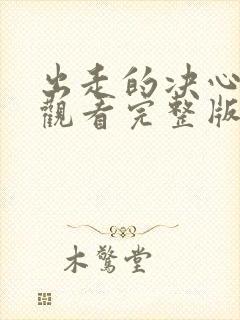 出走的决心
觀看完整版
木鷙堂